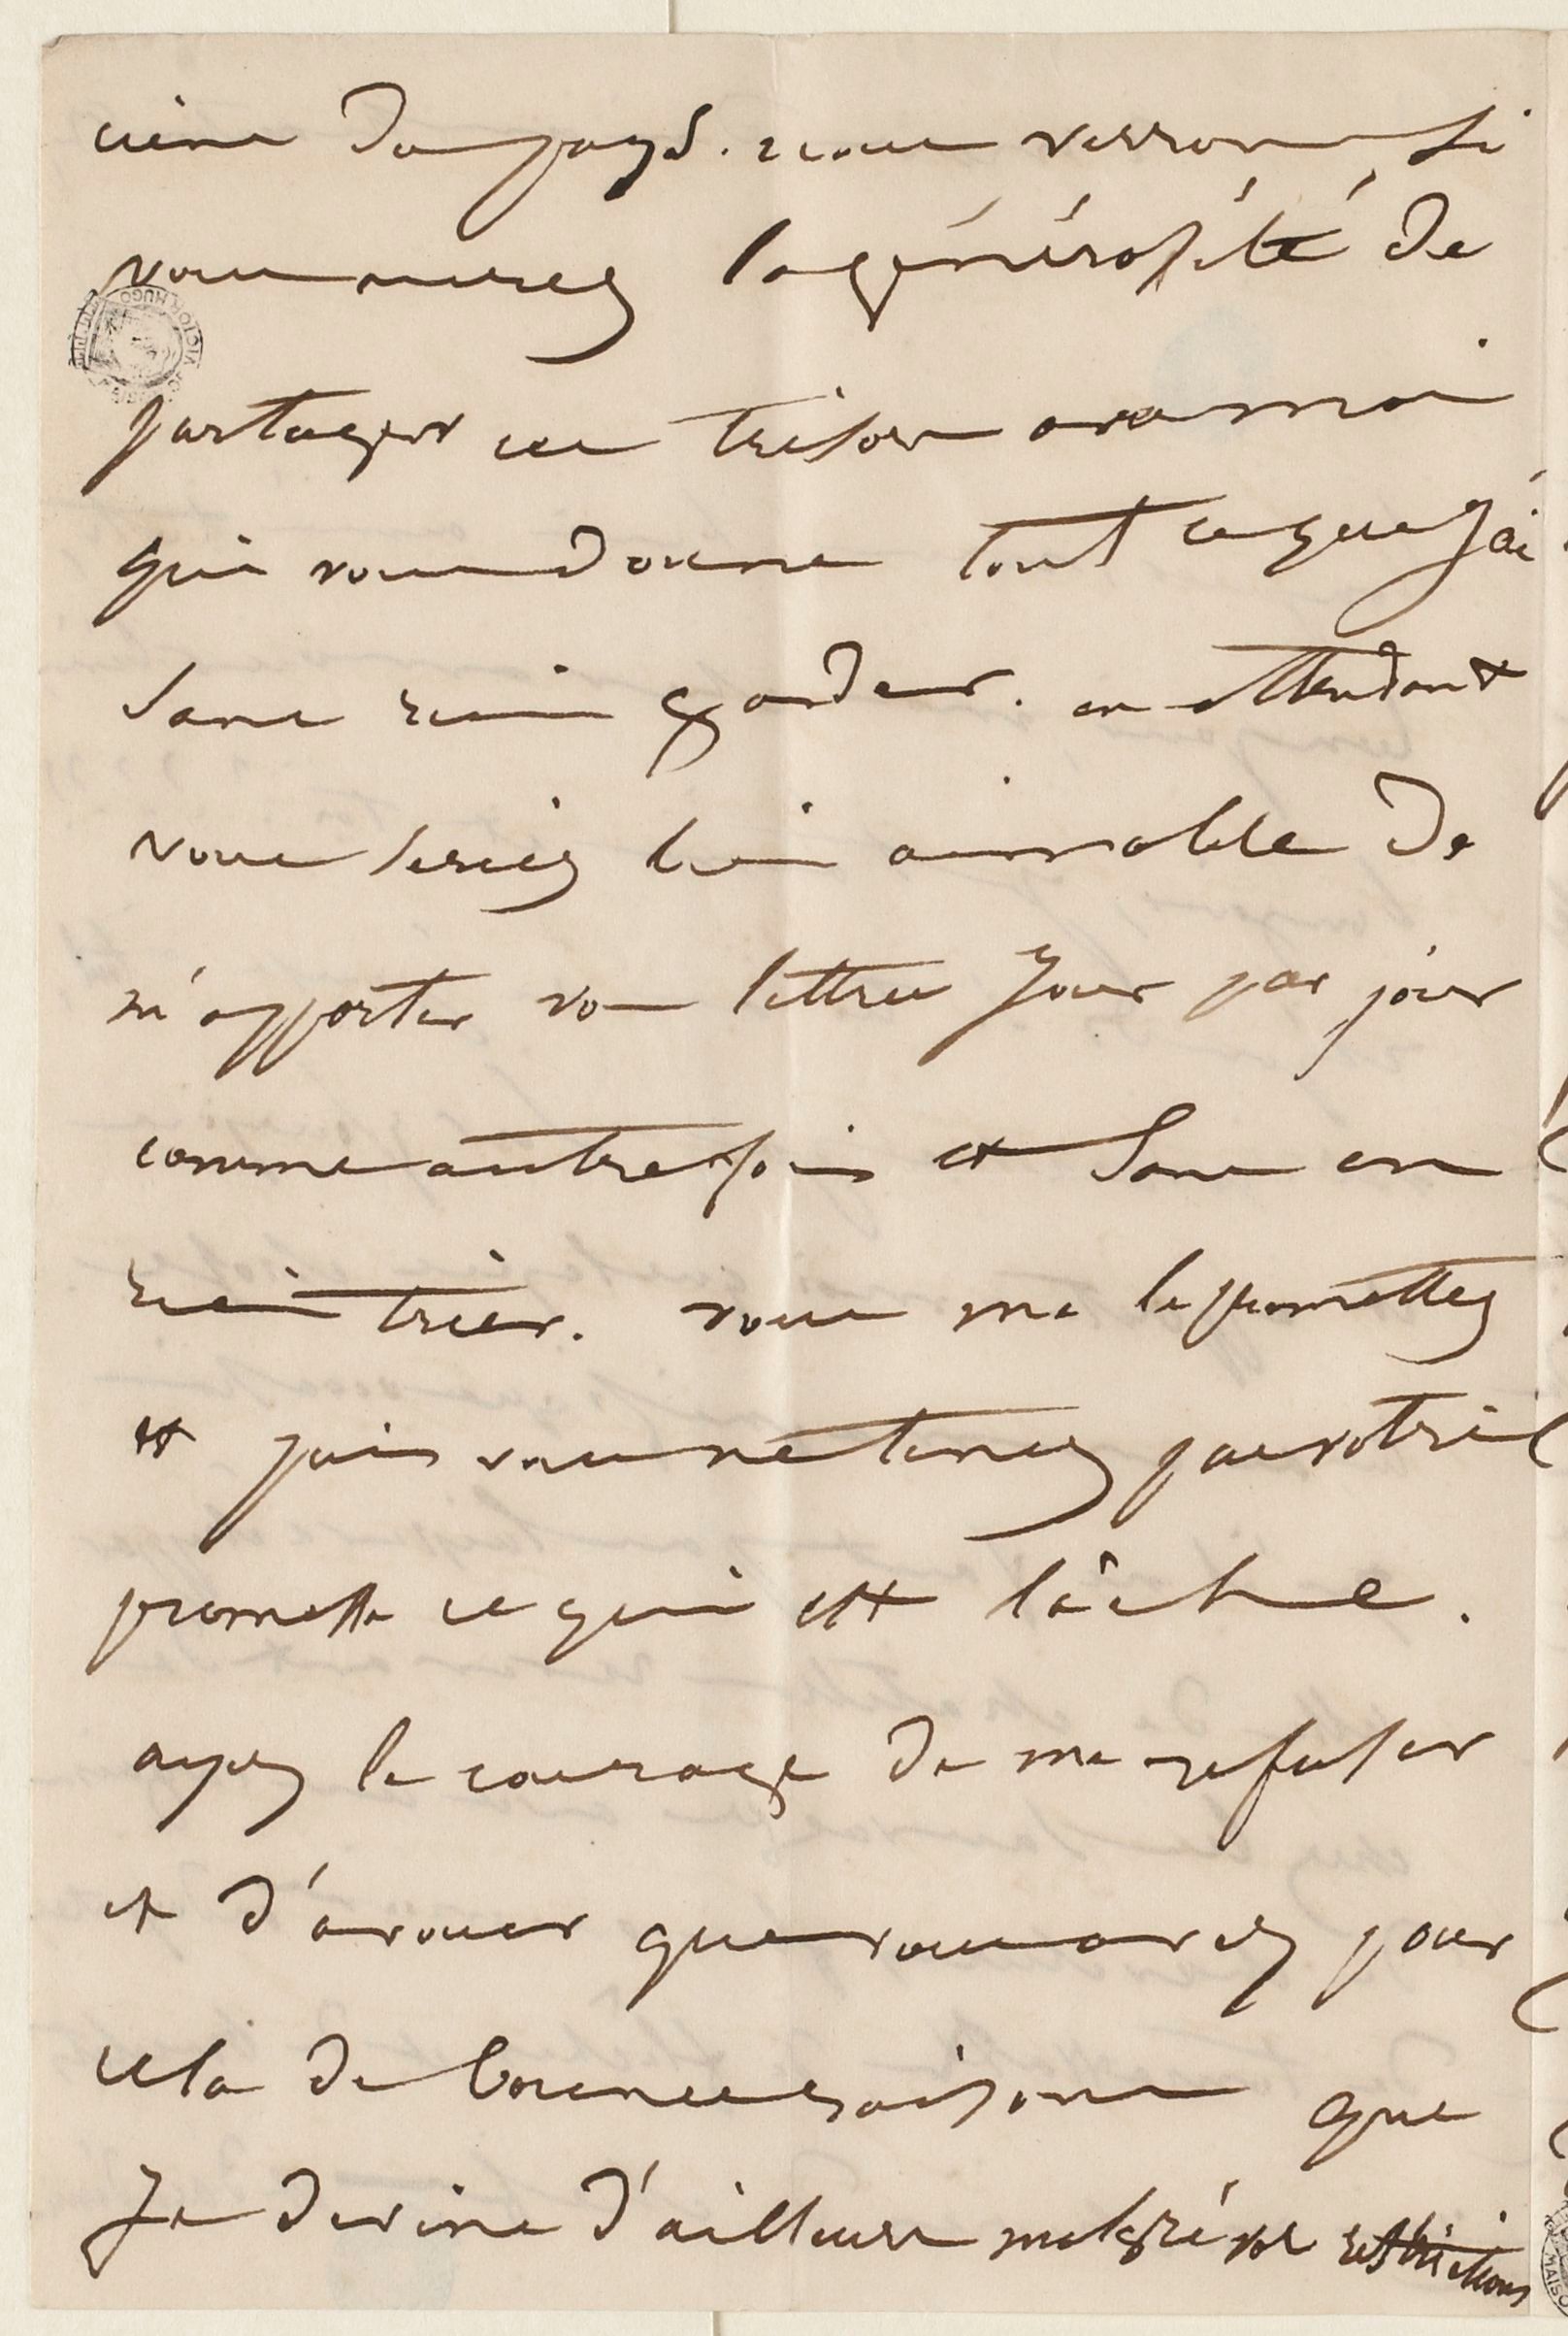 cième du pays. nous verrons si
vous aurez la générosité de
partager ces trésors avec moi
qui vous donne tout ce que j'ai
sans rien garder. en attendant
vous seriez bien aimable de
m'apporter vos lettres jour par jour
comme autrefois et sans en
rien trier. vous me le promettez
et puis vous ne tenez pas votre
promesse ce qui est lâche.
ayez le courage de me refuser
et d'avouer que vous avez pour
cela de bonnes raisons que
je devine d'ailleurs malgré vos restrictions